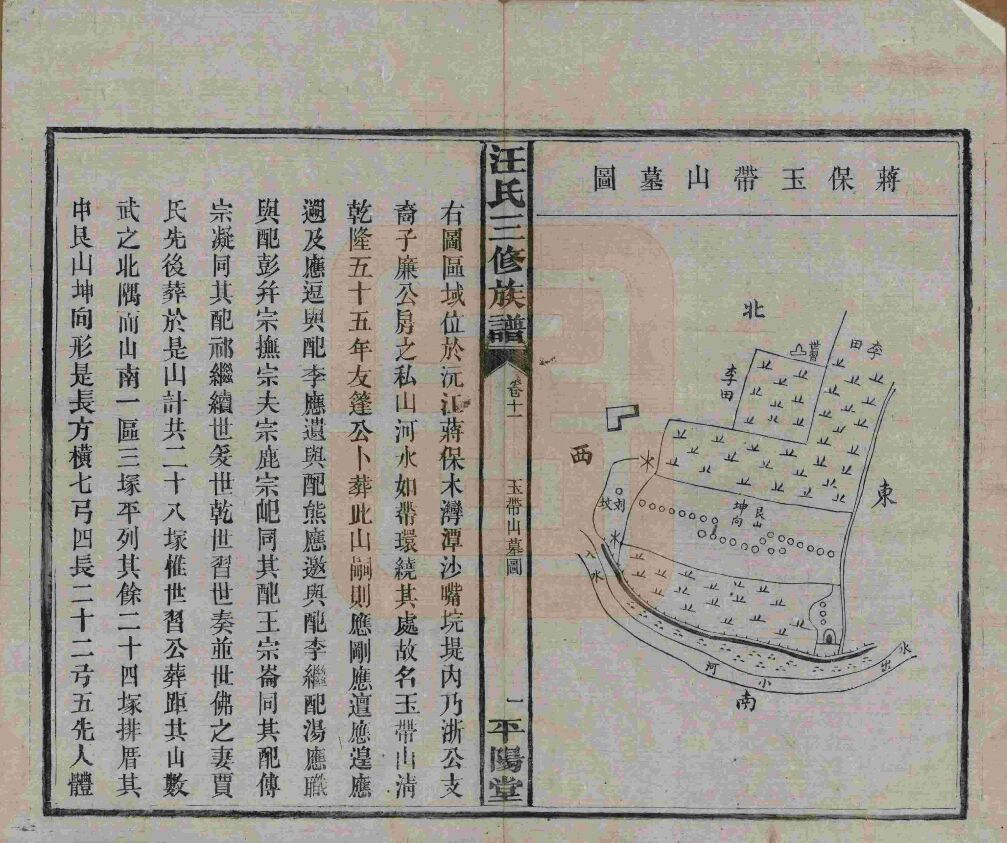 蔣保玉帶山墓圖
北
東
西
南
李田
李田
世習
艮山
坤向
刘坟
入水
小河
出水
汪氏三修族譜
卷十一
玉帶山墓圖
一
平陽堂
右圖區域位於沅江蔣保木灣潭沙嘴垸堤內乃浙公支
裔子廉公房之私山河水如帶環繞其處故名玉帶山清
乾隆五十五年友篷公卜葬此山嗣則應剛應邅應遑應
遡及應逗與配李應遺與配熊應邀與配李繼配湯應職
與配彭幷宗撫宗夫宗鹿宗岠同其配王宗崙同其配傅
宗凝同其配祁繼續世爰世乾世習世奏並世佛之妻賈
氏先後葬於是山計共二十八塚惟世習公葬距其山數
武之北隅而山南一區三塚平列其餘二十四塚排厝其
中艮山坤向形是長方橫七弓四長二十二弓五先人體